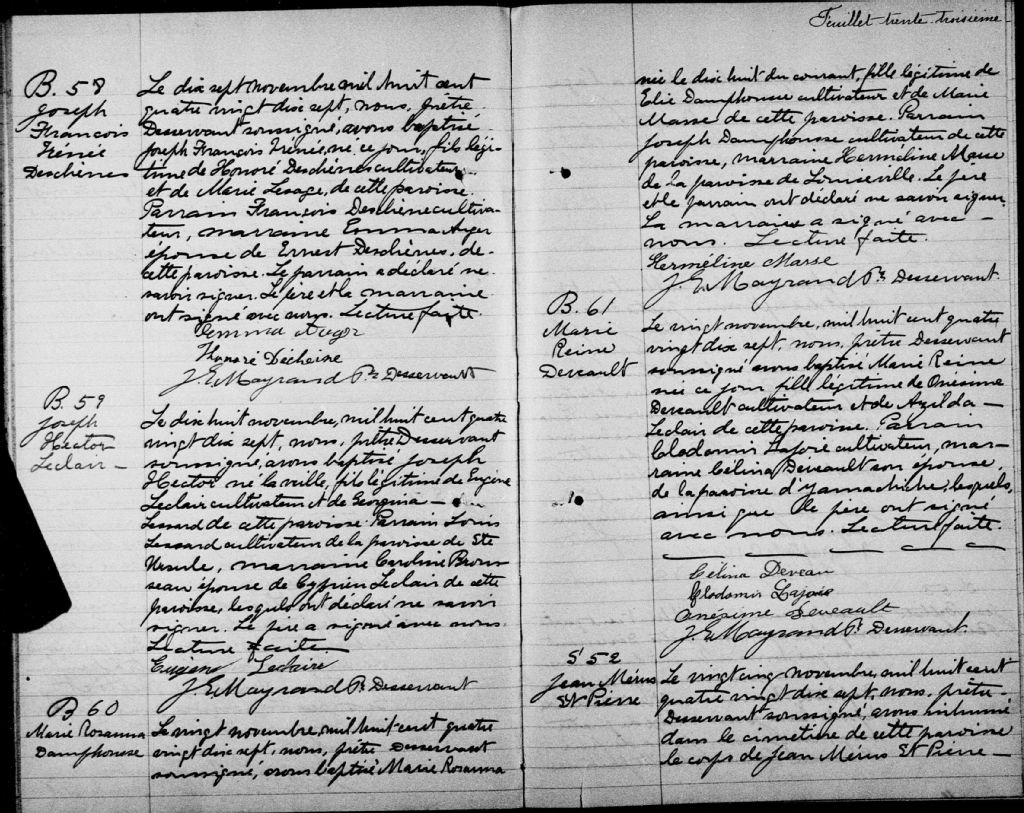 Feuillet trente-troisième
B. 58
Joseph
François
Irénée
Deschênes
Le dix sept novembre mil huit cent
quatre vingt dix sept, nous, prêtre
Desservant soussigné, avons baptisé
Joseph François Irénée, né ce jour, fils légi-
time de Honoré Deschênes cultivateur
et de Marie Lesage, de cette paroisse.
Parrain François Deschêne cultiva-
teur, marraine Emma Auger
épouse de Ernest Deschênes, de
cette paroisse. Le parrain a déclaré ne
savoir signer. Le père et la marraine
ont signé avec nous. Lecture faite.
Emma Auger
Honoré Décheine
J E Mayrand Ptre Desservant
B. 59
Joseph
Hector
Leclair
Le dix huit novembre, mil huit cent quatre
vingt dix sept, nous, prêtre Desservant
soussigné, avons baptisé Joseph
Hector né la veille, fils légitime de Eugène
Leclair cultivateur et de Georgina
Lessard de cette paroisse. Parrain Louis
Lessard cultivateur de la paroisse de Ste
Ursule, marraine Caroline Brous-
seau épouse de Cyprien Leclair de cette
paroisse, lesquels ont déclaré ne savoir
signer. Le père a signé avec nous.
Lecture faite.
Eugène Leclaire
J E Mayrand Ptre Desservant
B 60
Marie Rosanna
Damphousse
Le vingt novembre, mil huit cent quatre
vingt dix sept, nous, prêtre Desservant
soussigné, avons baptisé Marie Rosanna
née le dix huit du courant, fille légitime de
Elie Damphousse cultivateur et de Marie
Masse de cette paroisse. Parrain
Joseph Damphousse cultivateur de cette
paroisse, marraine Herméline Masse
de la paroisse de Louiseville. Le père
et le parrain ont déclaré ne savoir signer.
La marraine a signé avec
nous. Lecture faite.
Herméline Masse
J E Mayrand Ptre Desservant.
B. 61
Marie
Reine
Deveault
Le vingt novembre, mil huit cent quatre
vingt dix sept, nous, prêtre Desservant
soussigné avons baptisé Marie Reine
née ce jour fille légitime de Onésime
Deveault cultivateur et de Azilda
Leclair de cette paroisse. Parrain
Clodomir Lajoie cultivateur, mar-
raine Célina Deveault son épouse,
de la paroisse d'Yamachiche, lesquels,
ainsi que le père ont signé
avec nous. Lecture faite.
Célina Deveau
Clodomir Lajoie
Onésime Deveault
J E Mayrand Ptre Desservant.
S 52
Jean Mérius
St Pierre
Le vingt cinq novembre, mil huit cent
quatre vingt dix sept, nous, prêtre
Desservant soussigné, avons inhumé
dans le cimetière de cette paroisse
le corps de Jean Mérius St Pierre